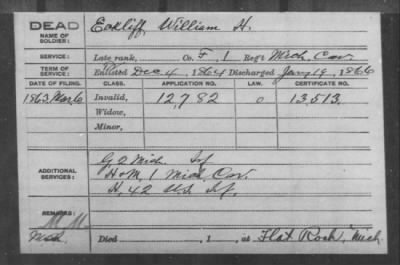 DEAD
NAME OF SOLDIER: Eckliff, William H.
SERVICE: Late rank, Co. F, 1 Reg't Mich Cav.
TERM OF SERVICE: Enlisted Dec. 4, 1864 Discharged Jany 19, 1866
DATE OF FILING. CLASS. APPLICATION NO. LAW. CERTIFICATE NO.
1863 Mar 6 Invalid, 12,782 0 13,513.
Widow,
Minor,
G 2 Mich Inf
ADDITIONAL SERVICES: H & M, 1 Mich Cav.
H, 42 U.S. Inf.
REMARKS:
Mich Died , 1 , at Flat Rock, Mich.